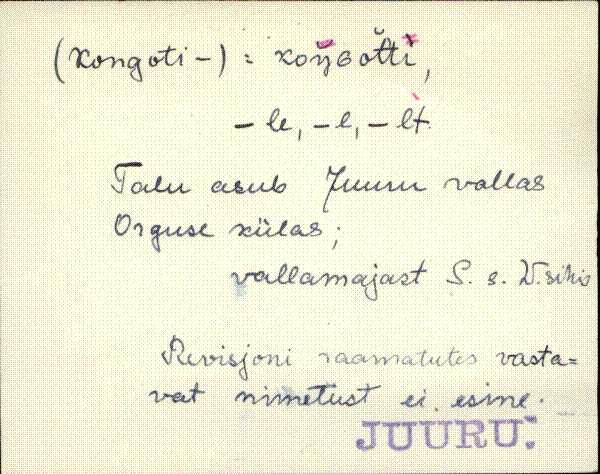 (Kongoti-) = koŋGot̆ti,
- le, - l, - lt.
Talu asub Juuru vallas
Orguse külas;
vallamajast S. s.
Revisjoni raamatutes vasta=
vat nimetust ei esine.
JUURU.